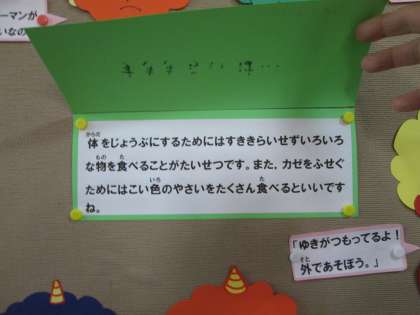 ーマンが
いなの
体をじょうぶにするためにはすききらいせずいろいろ
な物を食べることがたいせつです。また、カゼをふせぐ
ためにはこい色のやさいをたくさん食べるといいです
ね。
「ゆきがつもってるよ！
外であそぼう。」